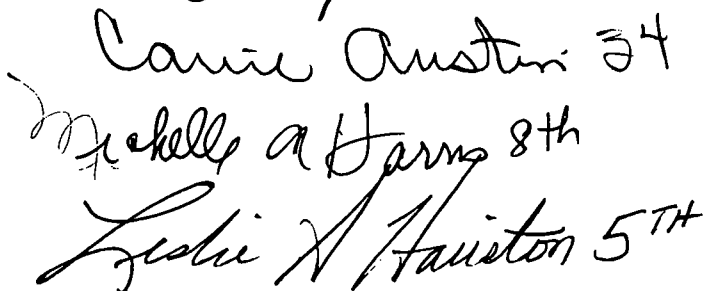 Carrie Austin 34
Michelle A Harris 8th
Leslie A Hairston 5TH